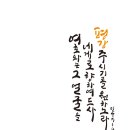 여호와는 그 얼굴을
네게로 향하여 드사
평강 주시기를 원하노라